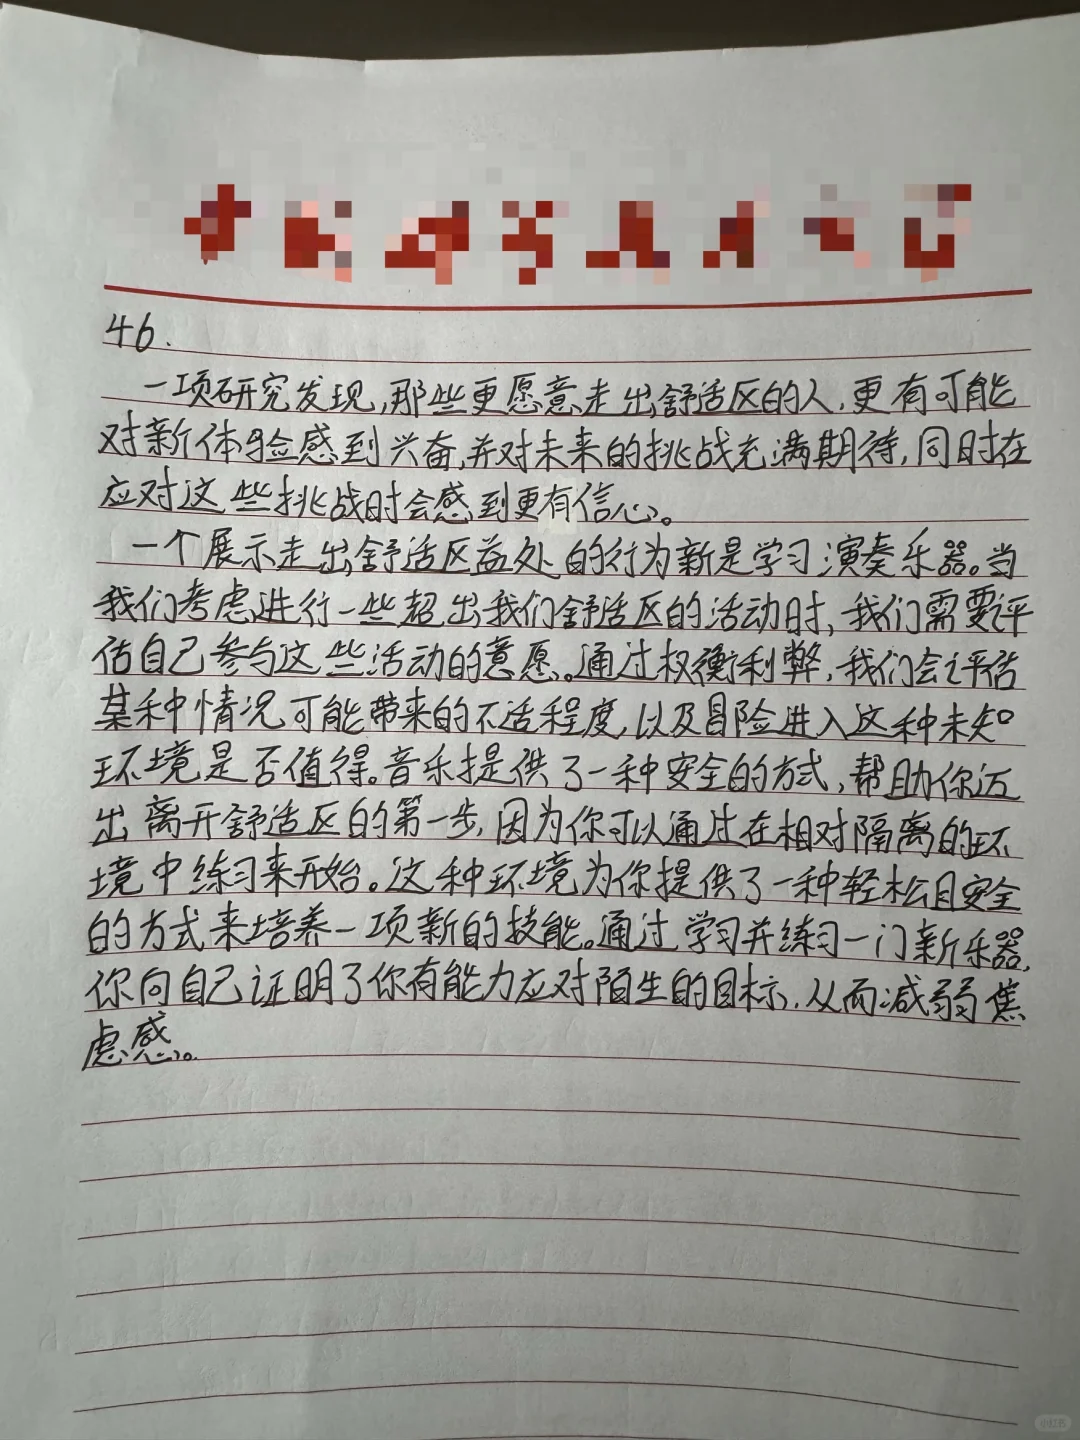 46.
一项研究发现,那些更愿意走出舒适区的人,更有可能
对新体验感到兴奋,并对未来的挑战充满期待,同时在
应对这些挑战时会感到更有信心。
一个展示走出舒适区益处的行为新是学习演奏乐器。当
我们考虑进行一些超出我们舒适区的活动时,我们需要评
估自己参与这些活动的意愿。通过权衡利弊,我们会评估
某种情况可能带来的不适程度,以及冒险进入这种未知
环境是否值得。音乐提供了一种安全的方式,帮助你迈
出离开舒适区的第一步,因为你可以通过在相对隔离的环
境中练习来开始。这种环境为你提供了一种轻松且安全
的方式来培养一项新的技能。通过学习并练习一门新乐器,
你向自己证明了你有能力应对陌生的目标,从而减弱焦
虑感。
小红书